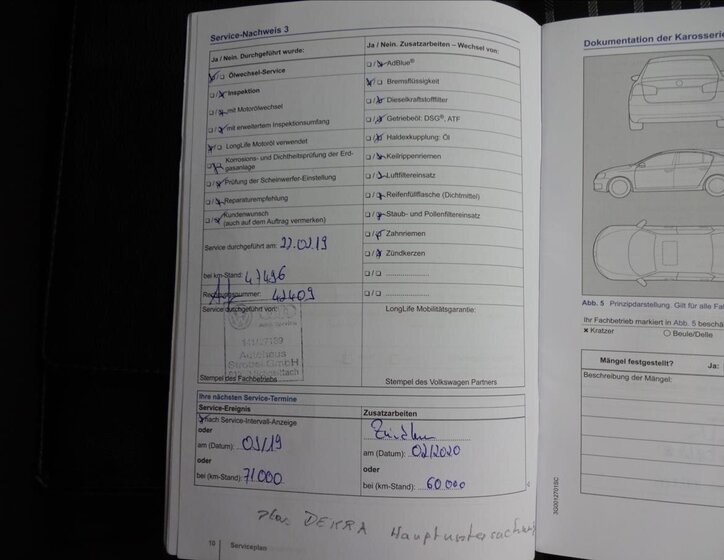 Service-Nachweis 3
Ja / Nein. Durchgeführt wurde:
❏/❏ Ölwechsel-Service
❏/❏ Inspektion
❏/❏ mit Motorölwechsel
❏/❏ mit erweitertem Inspektionsumfang
❏/❏ LongLife Motoröl verwendet
❏/❏ Korrosions- und Dichtheitsprüfung der Erd-
gasanlage
❏/❏ Prüfung der Scheinwerfer-Einstellung
❏/❏ Reparaturempfehlung
❏/❏ Kundenwunsch
(auch auf dem Auftrag vermerken)
Service durchgeführt am: 22.02.19
bei km-Stand: 47496
Rechnungsnummer: 42409
Service durchgeführt von:
141/27189
Autohaus
Strobel GmbH
Stempel des Fachbetriebs
Ja / Nein. Zusatzarbeiten – Wechsel von:
❏/❏ AdBlue®
❏/❏ Bremsflüssigkeit
❏/❏ Dieselkraftstofffilter
❏/❏ Getriebeöl: DSG®, ATF
❏/❏ Haldexkupplung: Öl
❏/❏ Keilrippenriemen
❏/❏ Luftfiltereinsatz
❏/❏ Reifenfüllflasche (Dichtmittel)
❏/❏ Staub- und Pollenfiltereinsatz
❏/❏ Zahnriemen
❏/❏ Zündkerzen
❏/❏ ....................
❏/❏ ....................
LongLife Mobilitätsgarantie:
Stempel des Volkswagen Partners
Ihre nächsten Service-Termine
Service-Ereignis
nach Service-Intervall-Anzeige
oder
am (Datum): 03/19
oder
bei (km-Stand): 71.000
Zusatzarbeiten
am (Datum): 02/2020
oder
bei (km-Stand): 60.000
DEKRA Hauptuntersuchung
10 Serviceplan
Dokumentation der Karosserie
Abb. 5 Prinzipdarstellung. Gilt für alle Fa
Ihr Fachbetrieb markiert in Abb. 5 beschä
× Kratzer
○ Beule/Delle
Mängel festgestellt? Ja:
Beschreibung der Mängel:
3G0012701BC